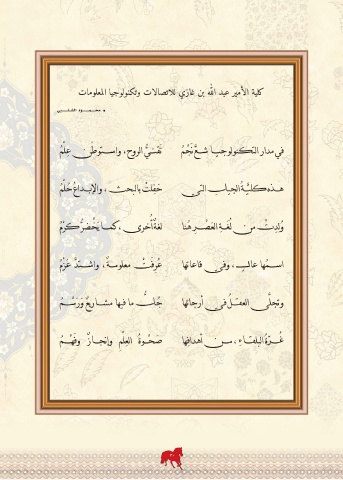 كلية الأمير عبد الله بن غازي للاتصالات وتكنولوجيا المعلومات
في مدار التكنولوجيا شعَّ نَجْمُ نَفَسيَّ الروح، واستوطن علْمُ
هذه كليَّةُ الجيلِ التي حَفِلتْ بالبحث، والإبداعُ حُلْمُ
وُلِدتْ من لُغَةِ العَصْرِ هُنا لغةٌ أُخرى، كما يَخْضرُّ كَرْمُ
اسمُها عاشَ، وفي قاعاتِها عُرِفَتْ معلومةٌ، واشتدَّ عَزْمُ
وتجلَّى العقلُ في أرجائها جُلُّ ما فيها مشاريعُ ورَسْمُ
غُرَّةُ البلقاءِ، من أهدافِها صَحْوةُ العِلْمِ وإنجازٌ وفَهْمُ